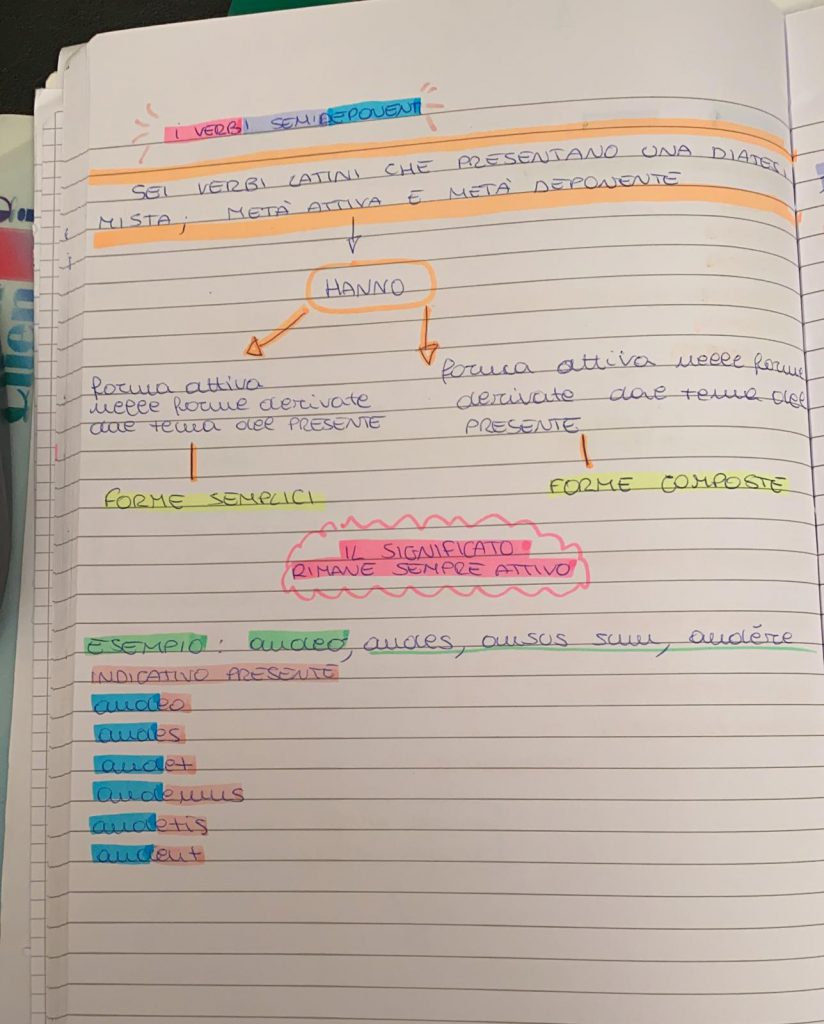 I VERBI SEMIDEPONENTI
SEI VERBI LATINI CHE PRESENTANO UNA DIATESI
MISTA; METÀ ATTIVA E METÀ DEPONENTE
HANNO
forma attiva
nelle forme derivate
dal tema del PRESENTE
forma attiva nelle forme
derivate dal tema del
PRESENTE
FORME SEMPLICI
FORME COMPOSTE
IL SIGNIFICATO
RIMANE SEMPRE ATTIVO
ESEMPIO: audeo, audes, ausus sum, audēre
INDICATIVO PRESENTE
audeo
audes
audet
audemus
audetis
audent